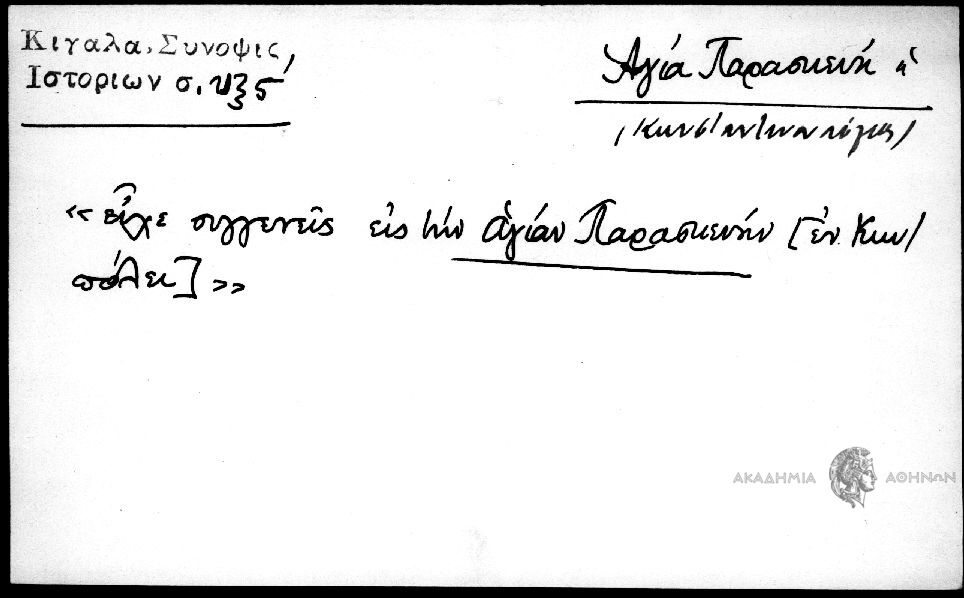 Κιγαλα, Συνοψις,
Ιστοριων σ. υξς
Ἁγία Παρασκευή ἡ
(Κωνσταντινουπόλεως)
«εἶχε συγγενεῖς εἰς τὴν ἁγίαν Παρασκευήν [ἐν Κων/
πόλει]»
ΑΚΑΔΗΜΙΑ ΑΘΗΝΩΝ